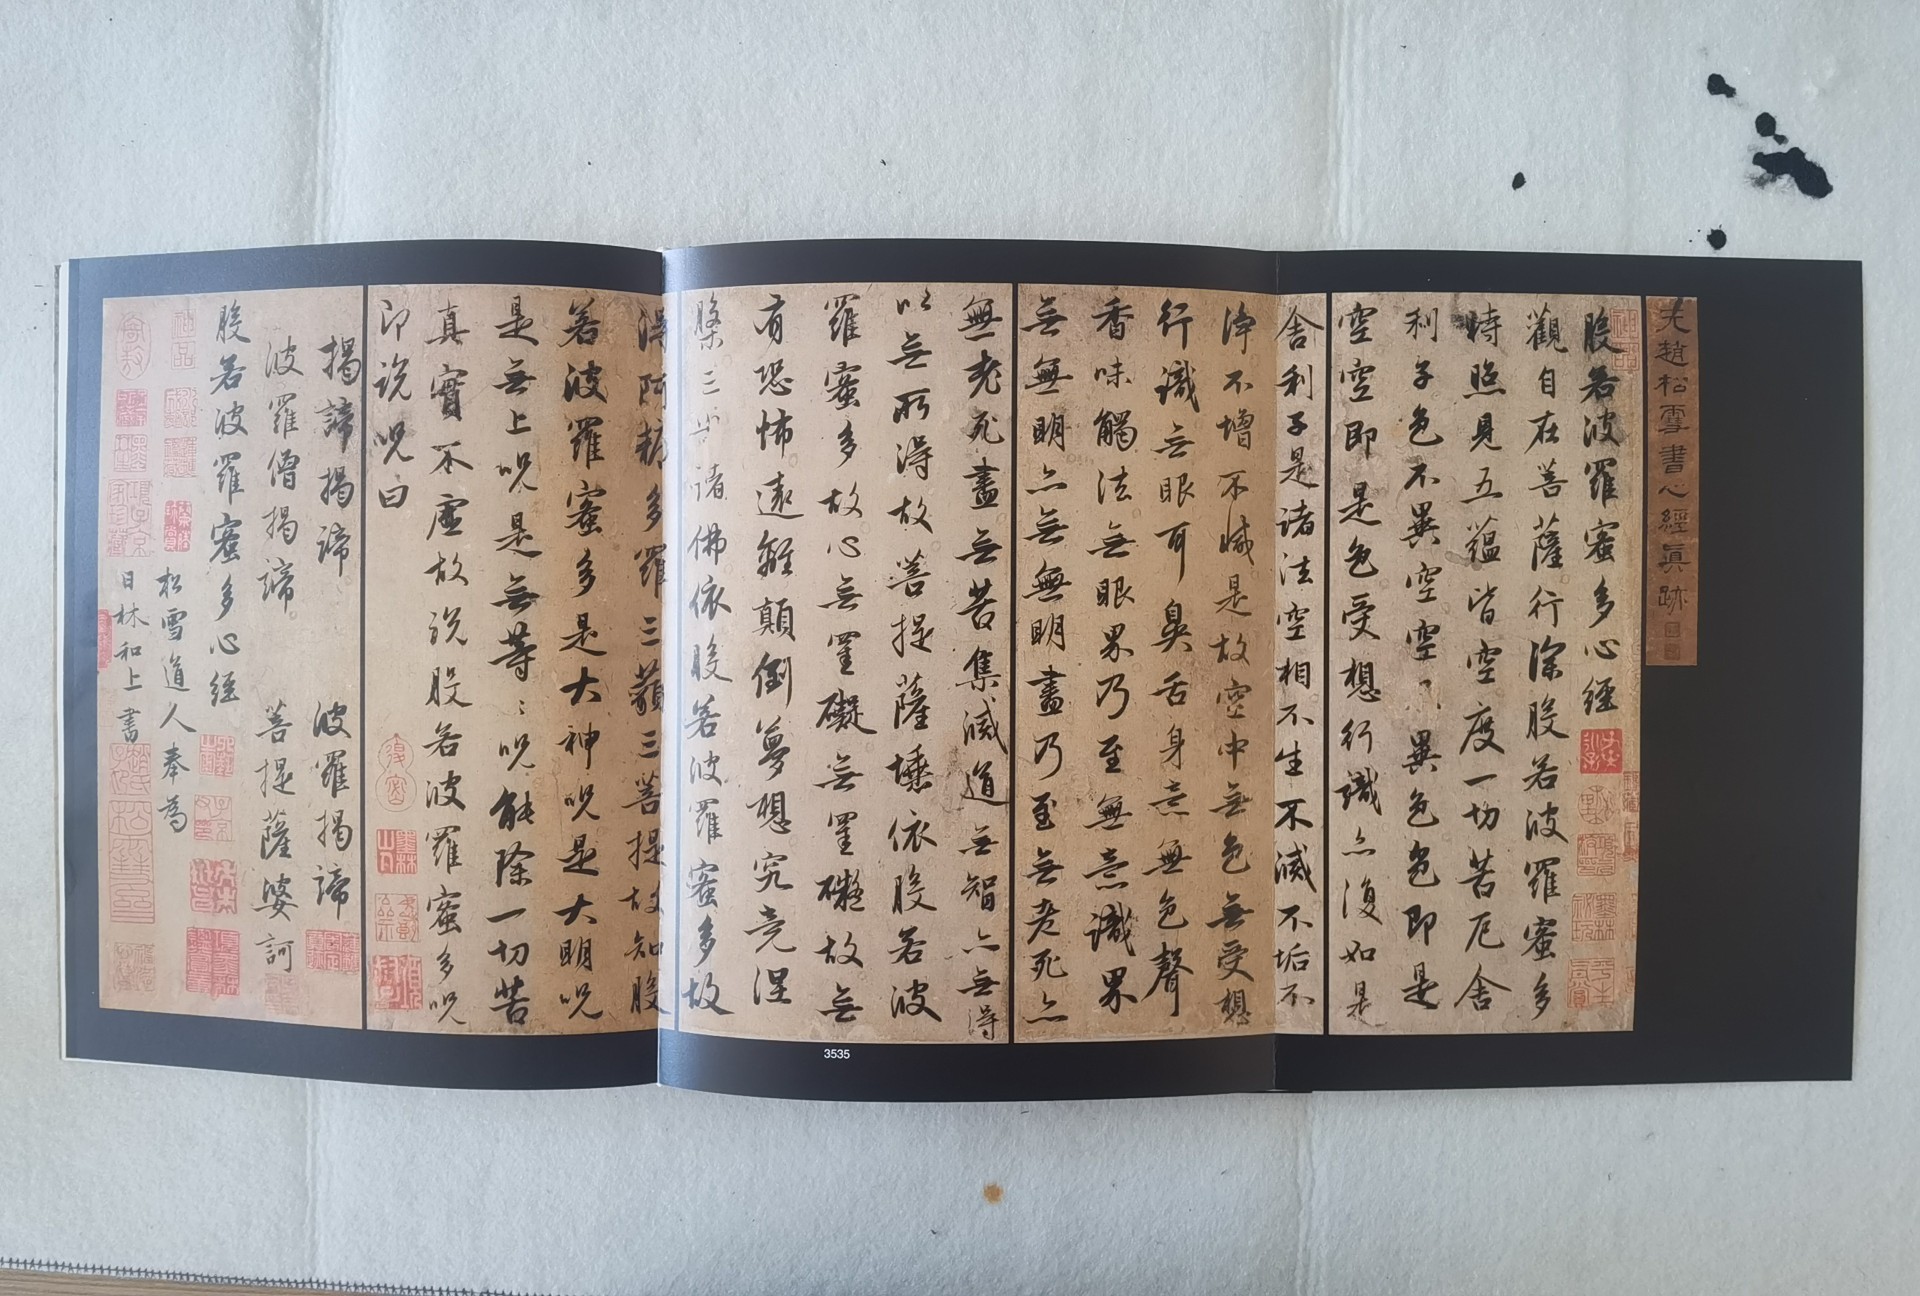 元趙松雪書心經真跡
般若波羅蜜多心經
觀自在菩薩行深般若波羅蜜多
時照見五蘊皆空度一切苦厄舍
利子色不異空空不異色色即是
空空即是色受想行識亦復如是
舍利子是諸法空相不生不滅不垢不
淨不增不減是故空中無色無受想
行識無眼耳鼻舌身意無色聲
香味觸法無眼界乃至無意識界
無無明亦無無明盡乃至無老死亦
無老死盡無苦集滅道無智亦無得
以無所得故菩提薩埵依般若波
羅蜜多故心無罣礙無罣礙故無
有恐怖遠離顛倒夢想究竟涅
槃三世諸佛依般若波羅蜜多故
得阿耨多羅三藐三菩提故知般
若波羅蜜多是大神呪是大明呪
是無上呪是無等〻呪能除一切苦
真實不虛故說般若波羅蜜多呪
即說呪曰
揭諦揭諦 波羅揭諦
波羅僧揭諦 菩提薩婆訶
般若波羅蜜多心經
松雪道人奉為
日林和上書
3535